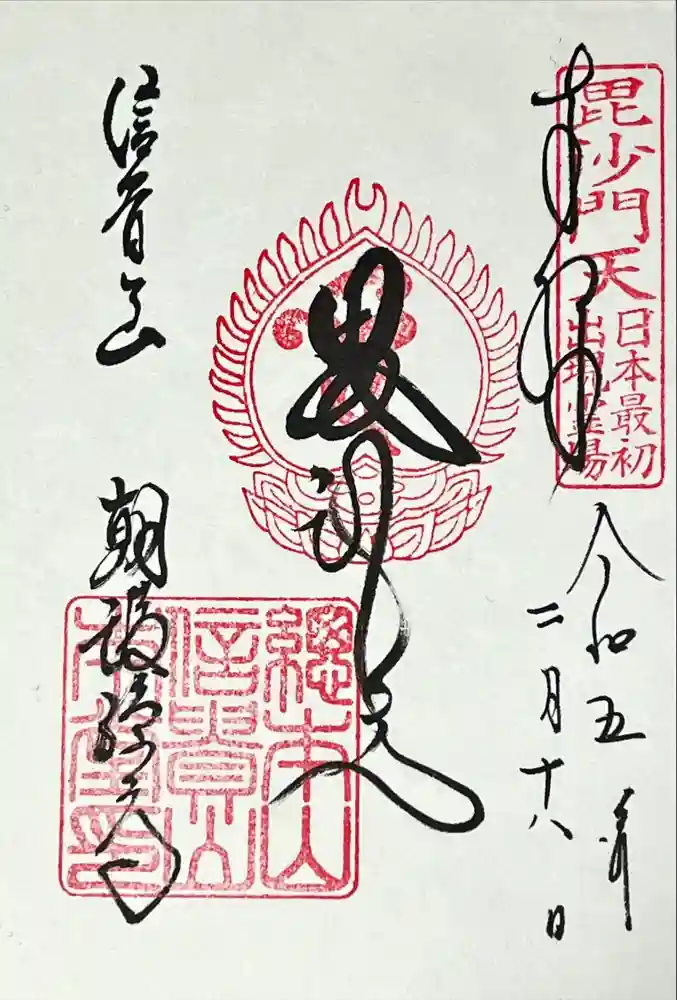 奉拝
毘沙門天
日本最初
出現霊場
令和五年
二月十八日
毘沙門天
總本山
信貴山
本堂印
信貴山
朝護孫子寺